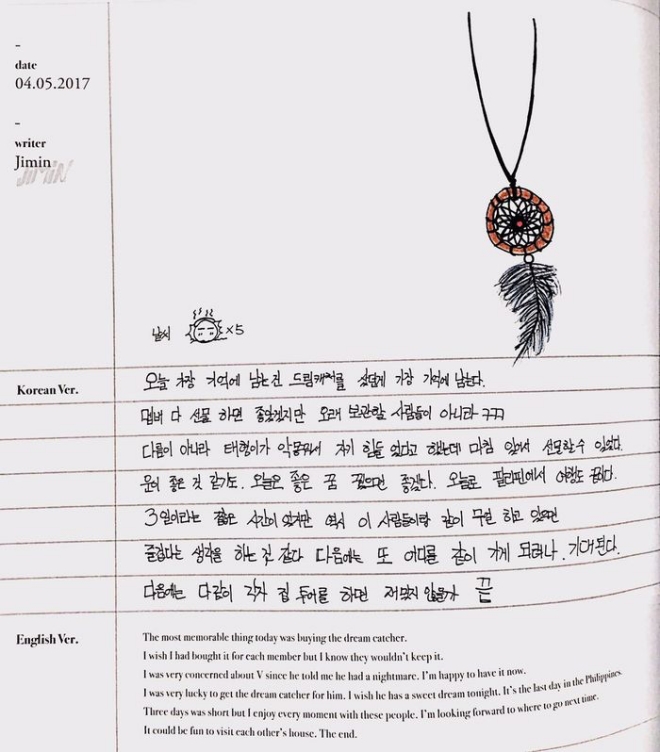 -
date
04.05.2017
-
writer
Jimin
JIMIN
날씨 ×5
Korean Ver.
오늘 가장 기억에 남는건 드림캐쳐를 샀던게 가장 기억에 남는다.
멤버 다 선물 하면 좋았겠지만 오래 보관할 사람들이 아니라 ㅋㅋㅋ
다름이 아니라 태형이가 악몽꿔서 자기 힘들었다고 했는데 마침 있어서 선물할수 있었다.
운이 좋은 것 같기도. 오늘은 좋은 꿈 꿨으면 좋겠다. 오늘로 필리핀에서 여행도 끝이다.
3일이라는 짧은 시간이 었지만 역시 이 사람들이랑 같이 무얼 하고 있으면
즐겁다는 생각을 하는 것 같다 다음에는 또 어디를 같이 가게 되려나. 기대된다.
다음에는 다같이 각자 집 투어를 하면 재밌지 않을까 끝
English Ver.
The most memorable thing today was buying the dream catcher.
I wish I had bought it for each member but I know they wouldn't keep it.
I was very concerned about V since he told me he had a nightmare. I'm happy to have it now.
I was very lucky to get the dream catcher for him. I wish he has a sweet dream tonight. It's the last day in the Philippines.
Three days was short but I enjoy every moment with these people. I'm looking forward to where to go next time.
It could be fun to visit each other's house. The end.